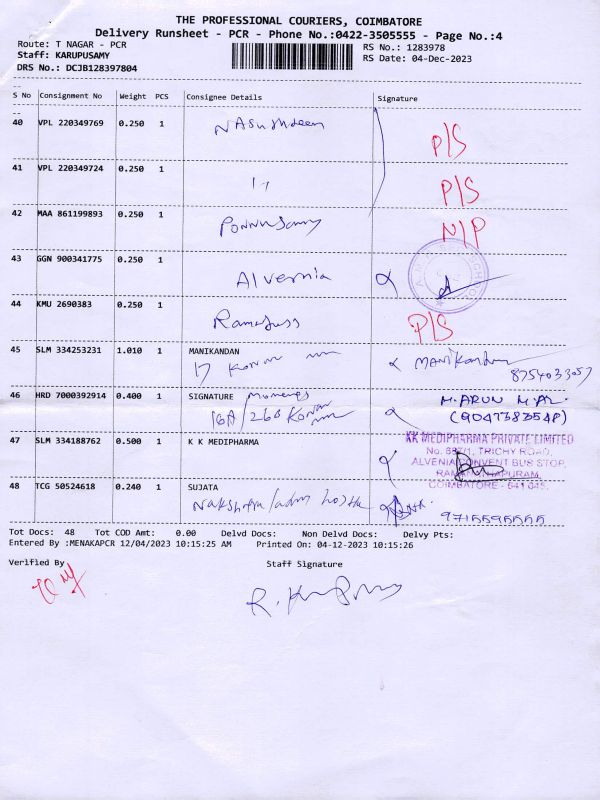 THE PROFESSIONAL COURIERS, COIMBATORE
Delivery Runsheet - PCR - Phone No.:0422-3505555 - Page No.:4
Route: T NAGAR - PCR RS No.: 1283978
Staff: KARUPUSAMY RS Date: 04-Dec-2023
DRS No.: DCJB128397804
S No Consignment No Weight PCS Consignee Details Signature
40 VPL 220349769 0.250 1 P/S
41 VPL 220349724 0.250 1 P/S
42 MAA 861199893 0.250 1 Ponnusamy N/P
43 GGN 900341775 0.250 1 Alvernia
44 KMU 2690383 0.250 1 P/S
45 SLM 334253231 1.010 1 MANIKANDAN Manikandan
17 8754033057
46 HRD 7000392914 0.400 1 SIGNATURE M. ARUN
16A/260
47 SLM 334188762 0.500 1 K K MEDIPHARMA KK MEDIPHARMA PRIVATE LIMITED
TRICHY ROAD,
ALVENIA CONVENT BUS STOP,
COIMBATORE - 641 045.
48 TCG 50524618 0.240 1 SUJATA
9715595555
Tot Docs: 48 Tot COD Amt: 0.00 Delvd Docs: Non Delvd Docs: Delvy Pts:
Entered By :MENAKAPCR 12/04/2023 10:15:25 AM Printed On: 04-12-2023 10:15:26
Verified By Staff Signature